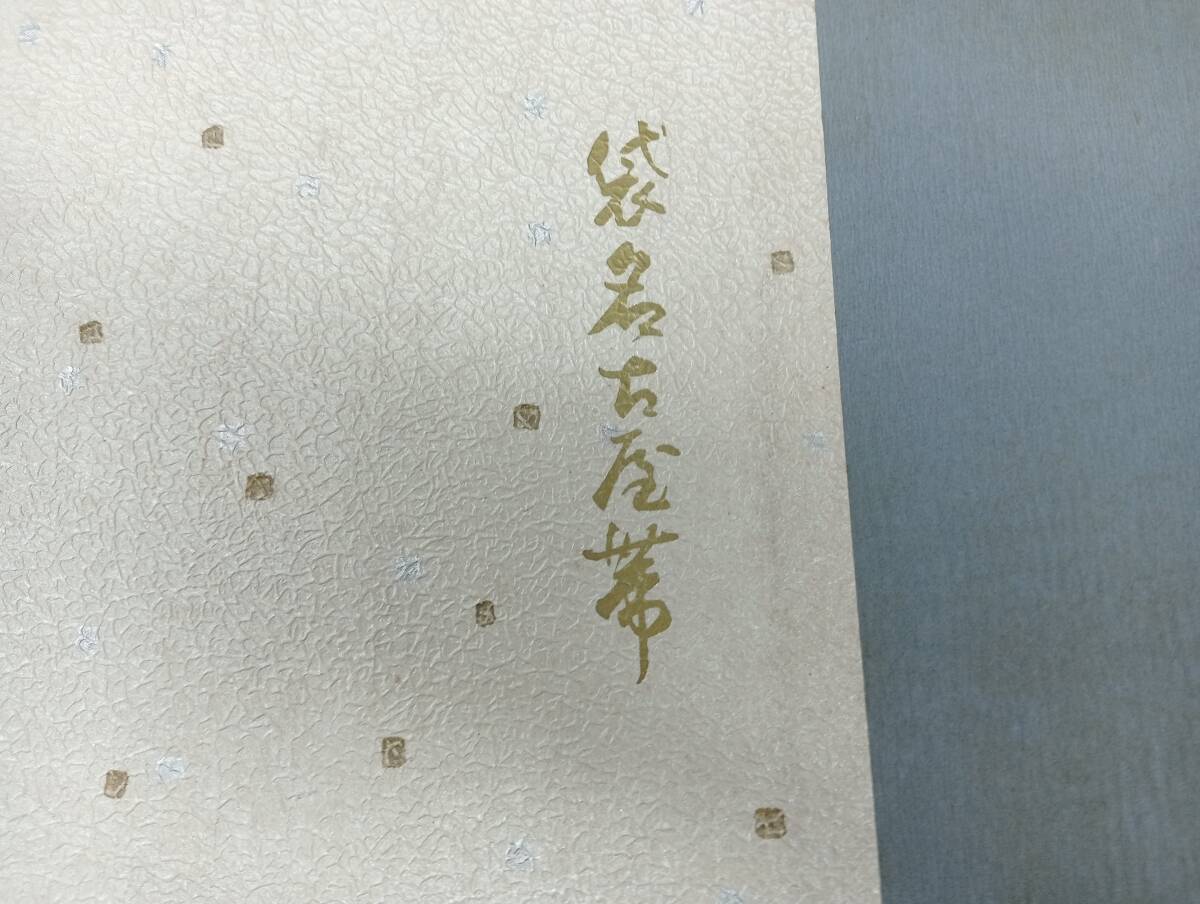 袋名古屋帯